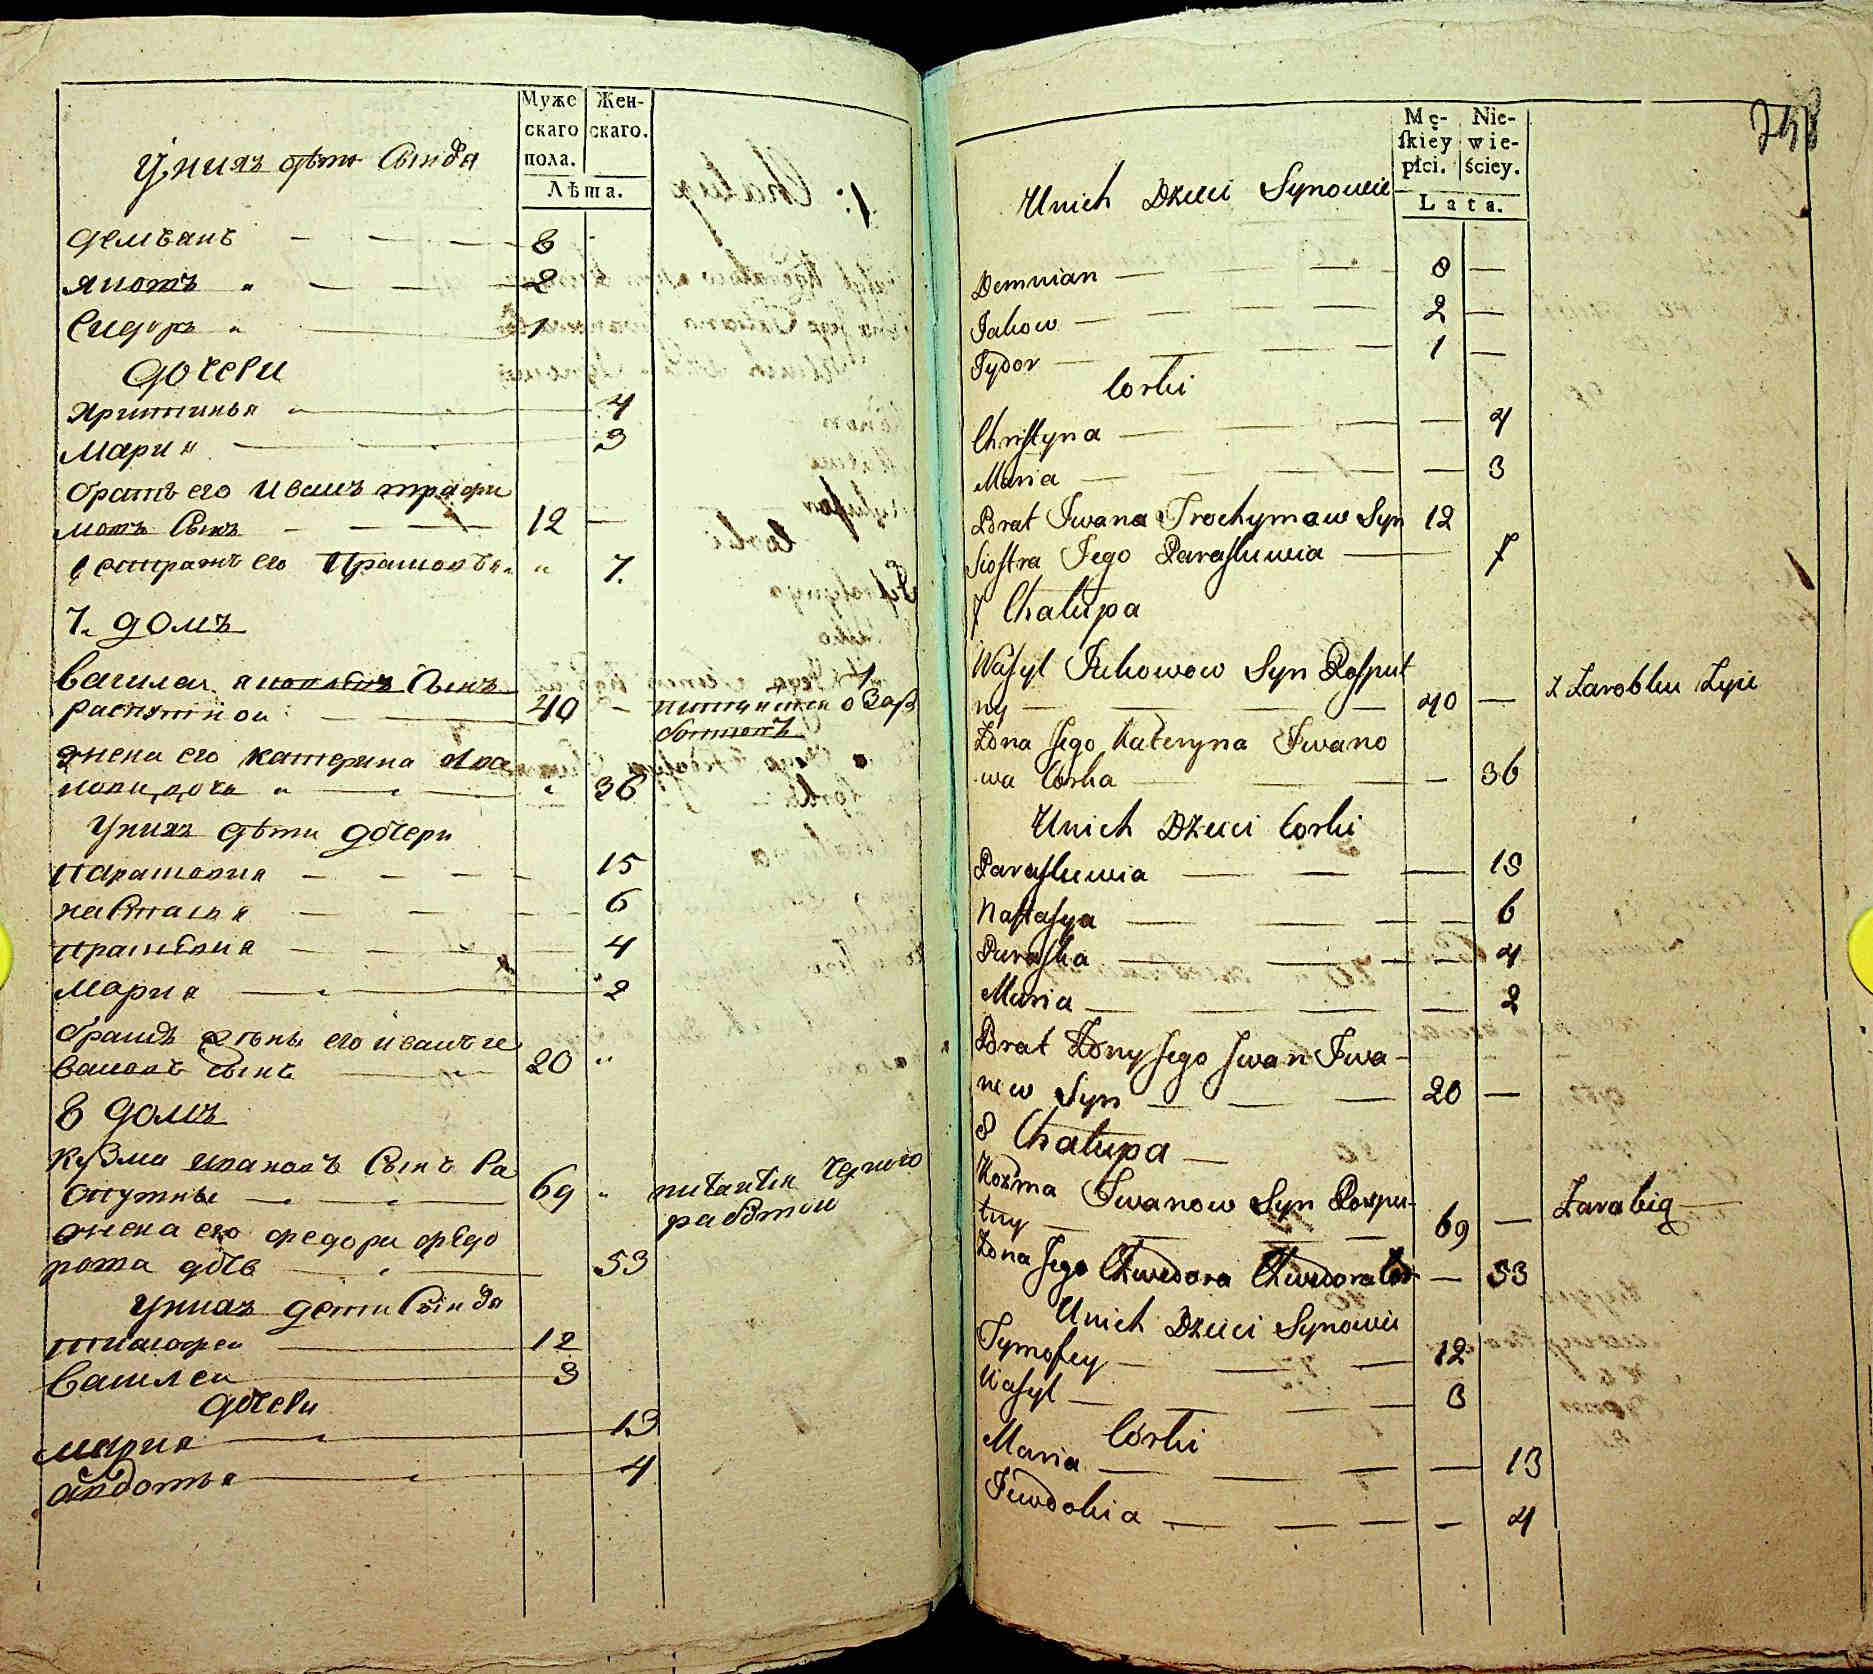 Муже
скаго
пола.
Жен-
скаго.
Лѣта.
У нихъ дѣти Сынва
Демьянъ 8
Яковъ 2
Сидоръ 1
дочери
Христинья 4
Мария 3
братъ его Иванъ трафи
мовъ Сынъ 12
Сестра его Прасковья 7.
7. домъ
Василеи яковлевъ Сынъ
Распутнои 40 питаитси о Зара
ботитъ
жена его катерина Ива
нова доче 36
У нихъ дѣти дочери
Парасковия 15
настасья 6
Прасковия 4
Мария 2
братъ жены его иванъ и
вановъ сынъ 20
8 домъ
Кузма ивановъ Сынъ Ра
спутные 69 питаитси черною
работои
жена его федора федо
рова дочь 53
У нихъ дети Сынва
тимофеи 12
Василеи 3
дочери
мария 13
авдотья 4
758
Mę-
ſkiey
płci.
Nie-
wie-
ściey.
Lata.
Unich Dzieci Synowie
Demnian 8
Jakow 2
Sydor 1
Corki
Chrystyna 4
Maria 3
Brat Jwana Trochymow Syn 12
Siostra Jego Paraskiewia 7
7 Chałupa
Wasyl Jakowow Syn Rosput
ny 40 Z Zarobku Zyie
Żona Jego Kateryna Jwano
wa Corka 36
Unich Dzieci Corki
Paraskiewia 15
Nastasya 6
Paraska 4
Maria 2
Brat Żony Jego Jwan Jwa-
now Syn 20
8 Chałupa
Kozma Jwanow Syn Rospu-
tny 69 Zarabia
Żona Jego Chwedora Chwedora Cor 53
Unich Dzieci Synowie
Tymofey 12
Wasyl 3
Córki
Maria 13
Jewdokia 4